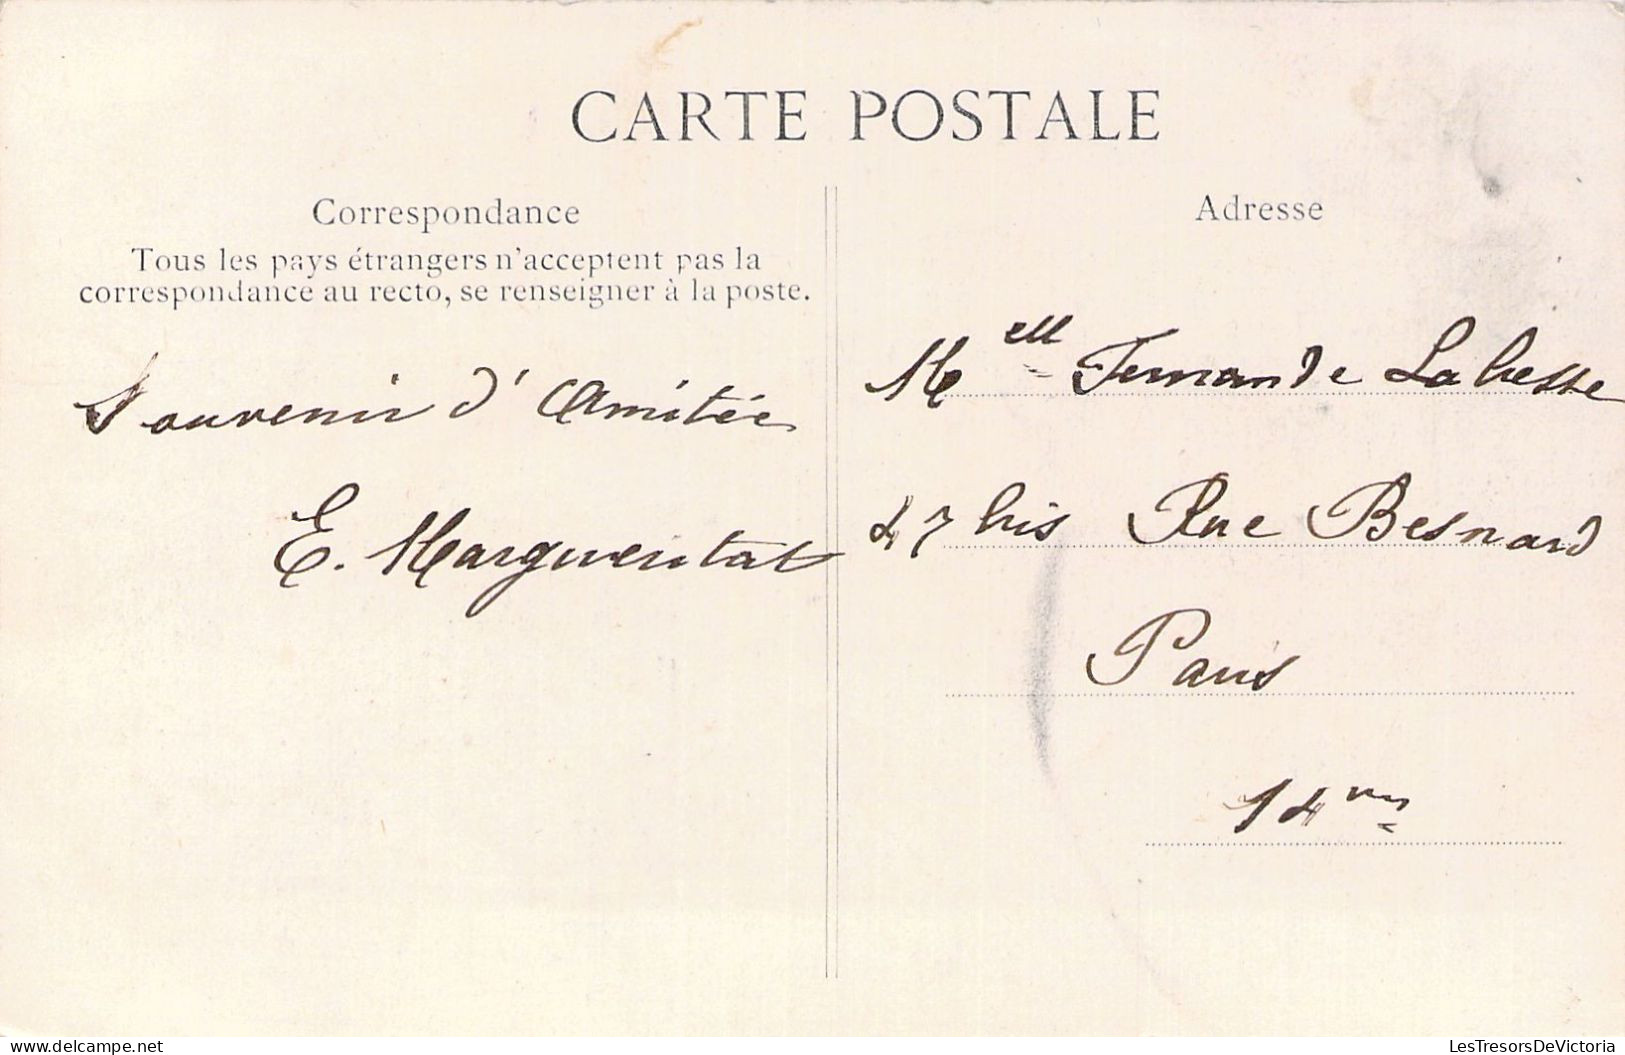 CARTE POSTALE
Correspondance
Tous les pays étrangers n'acceptent pas la
correspondance au recto, se renseigner à la poste.
Souvenir d'Amitée
E. Margueritat
Adresse
Melle Fernande Labesse
47 bis Rue Besnard
Paris
14me
delcampe.net
LesTresorsDeVictoria